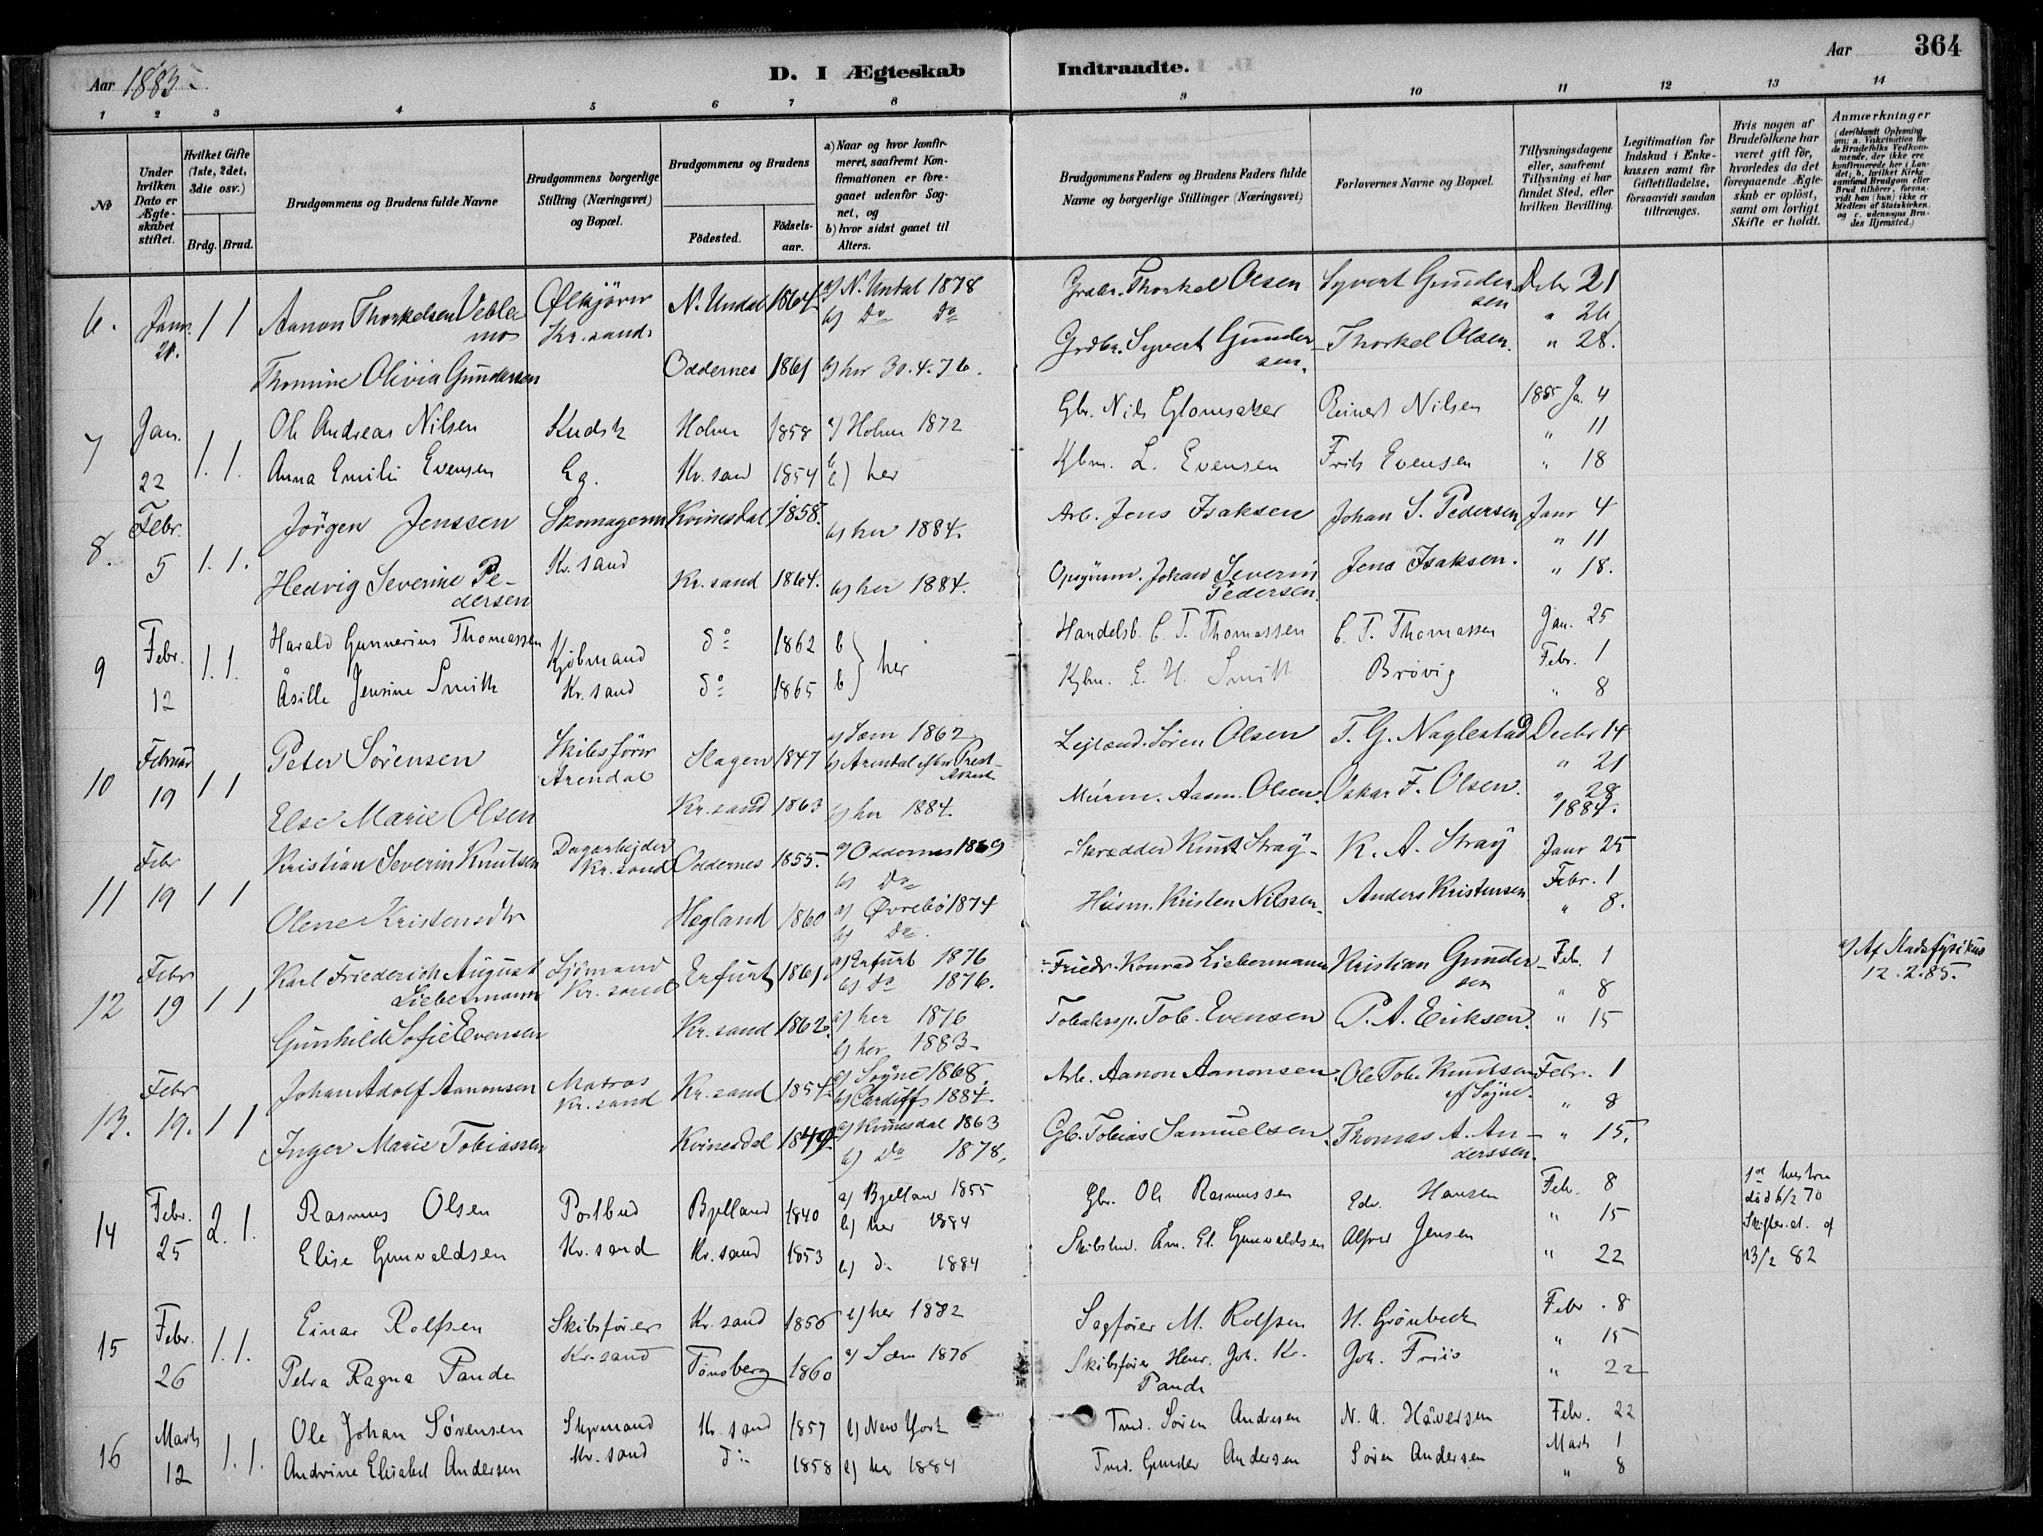 Aar 1885.
D. I Ægteskab Indtraadte.
Aar 364
1 2 3 4 5 6 7 8 9 10 11 12 13 14
No
Under hvilken Dato er Ægteskabet stiftet.
Hvilket Gifte (1ste, 2det, 3die osv.)
Brdg. Brud.
Brudgommens og Brudens fulde Navne
Brudgommens borgerlige Stilling (Næringsvei) og Bopæl.
Brudgommens og Brudens
Födested. Födsels-aar.
a) Naar og hvor konfirmeret, saafremt Konfirmationen er foregaaet udenfor Sognet, og
b) hvor sidst gaaet til Alters.
Brudgommens Faders og Brudens Faders fulde Navne og borgerlige Stillinger (Næringsvei)
Forlovernes Navne og Bopæl.
Tillysningsdagene eller, saafremt Tillysning ei har fundet Sted, efter hvilken Bevilling.
Legitimation for Indskud i Enkekassen samt for Giftetilladelse, forsaavidt saadan tiltrænges.
Hvis nogen af Brudefolkene har været gift för, hvorledes da det foregaaende Ægteskab er oplöst, samt om lovligt Skifte er holdt.
Anmærkninger
(deriblandt Oplysning om: a. Vakcination for de Brudefolks Vedkommende, der ikke ere konfirmerede her i Landet; b. hvilket Kirkesamfund Brudgom eller Brud tilhörer, forsaavidt han (hun) ikke er Medlem af Statskirken, og c. udensogns Brudes Hjemsted.)
6. Janr. 21. 1 1 Aanon Thorkelsen Veblemos Ølkjører Kr.sand. N. Undal 1864. a) N. Undal 1878 b) Do Do Grdbr. Thorkel Olsen Syvert Gundersen Debr 21
" 26
Thomine Olivia Gundersen Oddernes 1861 b) her 30.4.76. Grdbr. Syvert Gundersen. Thorkel Olsen. " 28.
7 Jan. 22 1. 1. Ole Andreas Nilsen Kudsk Eg. Holum 1858 a) Holum 1872 Gbr. Nils Glomsaker Reinert Nilsen 1885 Ja. 4
" 11
Anna Emilie Evensen Kr.sand 1854 b) her Kjbm. L. Evensen Frits Evensen " 18
8. Febr. 5 1. 1. Jörgen Jenssen Skomagersv. Kr.sand Kvinesdal 1858. b) her 1884. Arb. Jens Isaksen Johan S. Pedersen Janr 4
" 11
Hedvig Severine Pedersen Kr.sand 1864. b) her 1884. Opsynsm. Johan Severin Pedersen. Jens Isaksen. " 18.
9 Febr. 12 1. 1. Harald Gunnerius Thomassen Kjøbmand Kr.sand do 1862 b her Handelsb. C. T. Thomassen C. T. Thomassen Jan. 25
Febr. 1
Åsille Jensine Smith do 1865 b Kjbm. E. H. Smith Brøvig " 8
10 Februar 19 1 1 Peter Sörensen Skibsfører Arendal Slagen 1847 a) Sem 1862 b) Arendal Søren Olsen T. G. Naglestad Decbr 14
" 21
Else Marie Olsen Kr.sand 1863 b) her 1884. Murm. Aanon Olsen. Oskar F. Olsen. " 28
1884.
11 Febr 19 1 1 Kristian Severin Knutsen Dagarbejder Kr.sand Oddernes 1855. a) Oddernes 1869 b) Do Skrædder Knut Stray. K. A. Stray Janr 25
Febr. 1
Olene Kristensdtr Hegland 1860 a) Øvrebö 1874 b) Do. Husm. Kristen Nilssen. Anders Kristensen " 8.
12 Febr 19 1 1 Karl Friederich August Liebermann Sjömand Kr.sand Erfurt 1861. a) Erfurt 1876 b) Do 1876. Friedr. Konrad Liebermann Kristian Gundersen Feb. 1
" 8
a) Af Stadsfysikus 12.2.85.
Gunhilde Sofie Evensen Kr.sand 1862. a) her 1876 b) her 1883. Tobaksp. Tob. Evensen P. A. Eriksen. " 15
13. Febr 19. 1 1 Johan Adolf Aanonsen Matros Kr.sand Kr.sand 1854. a) Søgne 1868. b) Cardiff 1884. Arb. Aanon Aanonsen. Ole Tobr. Knudsen af Søgne. Febr. 1
" 8
Inger Marie Tobiassen Kvinesdal 1849. a) Kvinesdal 1863 b) Do 1878. Gb. Tobias Samuelsen. Thomas A. Anderssen. " 15.
14 Febr. 25 2. 1. Rasmus Olsen Postbud Kr.sand Bjelland 1840 a) Bjelland 1855 b) her 1884 Gbr. Ole Rasmussen Edv. Hansen Feb. 8
" 15
1ste hustru död 6/2 70 Skifter.at. af 13/2 82
Elise Gunvaldsen Kr.sand 1853 b) do 1884 Am. El. Gunvaldsen Alfred Jensen " 22
15 Febr. 26 1. 1. Einar Rolfsen Skibsfører Kr.sand Kr.sand 1856 b) her 1882 Sagfører M. Rolfsen H. Grönbech Febr. 8
" 15
Petra Ragna Pande Tønsberg 1860 a) Sem 1876 Skibsfører Henr. Joh. Kr. Pande Joh. Friis " 22
16 Marts 12 1. 1. Ole Johan Sørensen Styrmand Kr.sand Kr.sand 1857 b) New York Tmd. Søren Andresen N. A. Håversen Febr. 22
Marts 1
Andrine Elisabet Andersen do 1858 b) her 1884 Tmd. Gunder Andersen Søren Andersen " 8